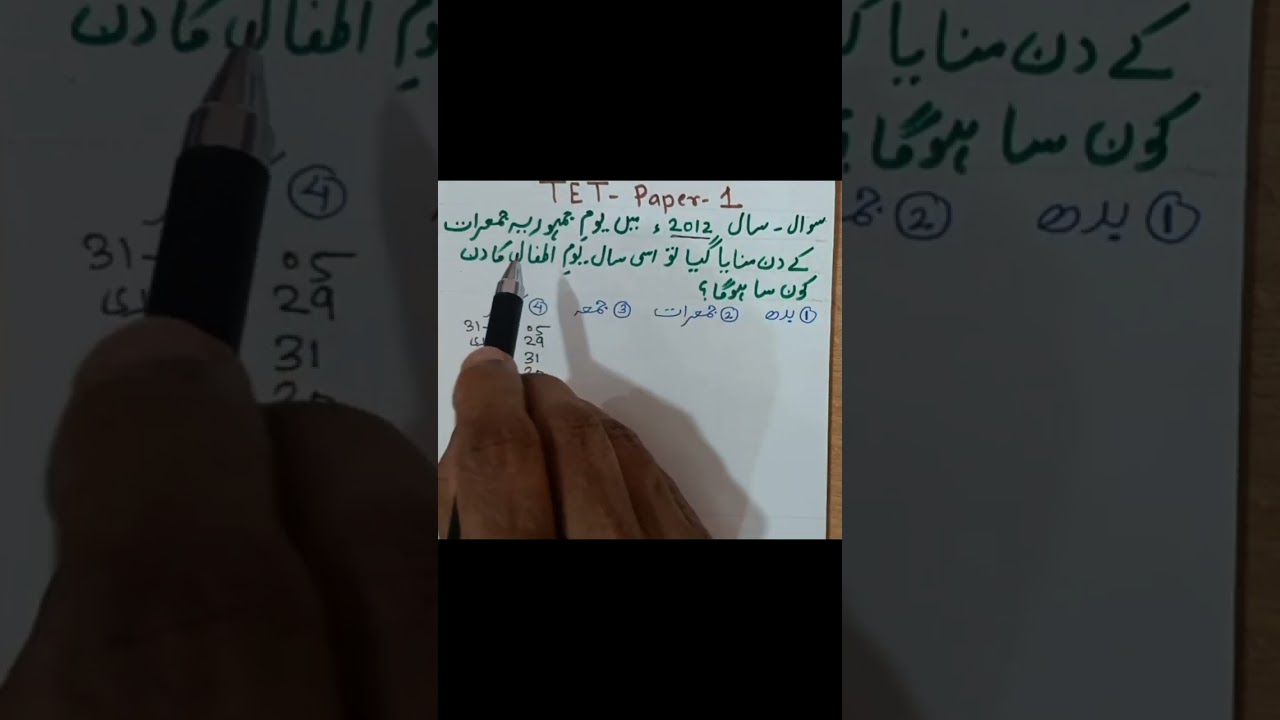 TET- Paper-1
سوال۔ سال 2012ء میں یومِ جمہوریہ جمعرات
کے دن منایا گیا تو اسی سال یومِ اطفال کا دن
کون سا ہوگا؟
① بدھ ② جمعرات ③ جمعہ ④
31- 05
29
31